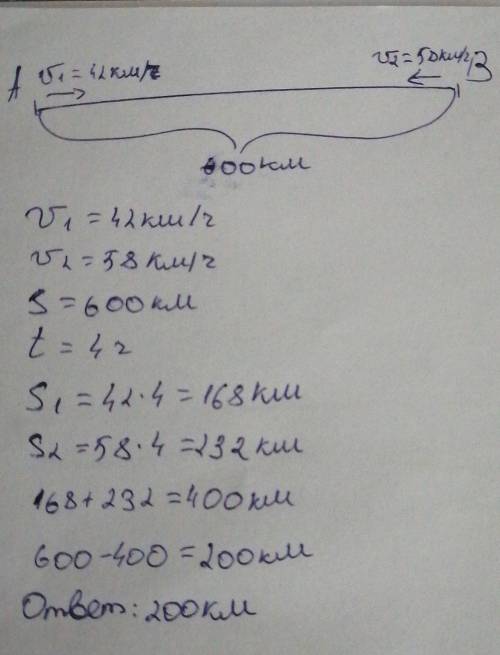 A v₁ = 42км/ч v₂ = 50км/ч B
600км
v₁ = 42км/ч
v₂ = 58км/ч
S = 600км
t = 4ч
S₁ = 42·4 = 168км
S₂ = 58·4 = 232км
168 + 232 = 400км
600 - 400 = 200км
Ответ: 200км